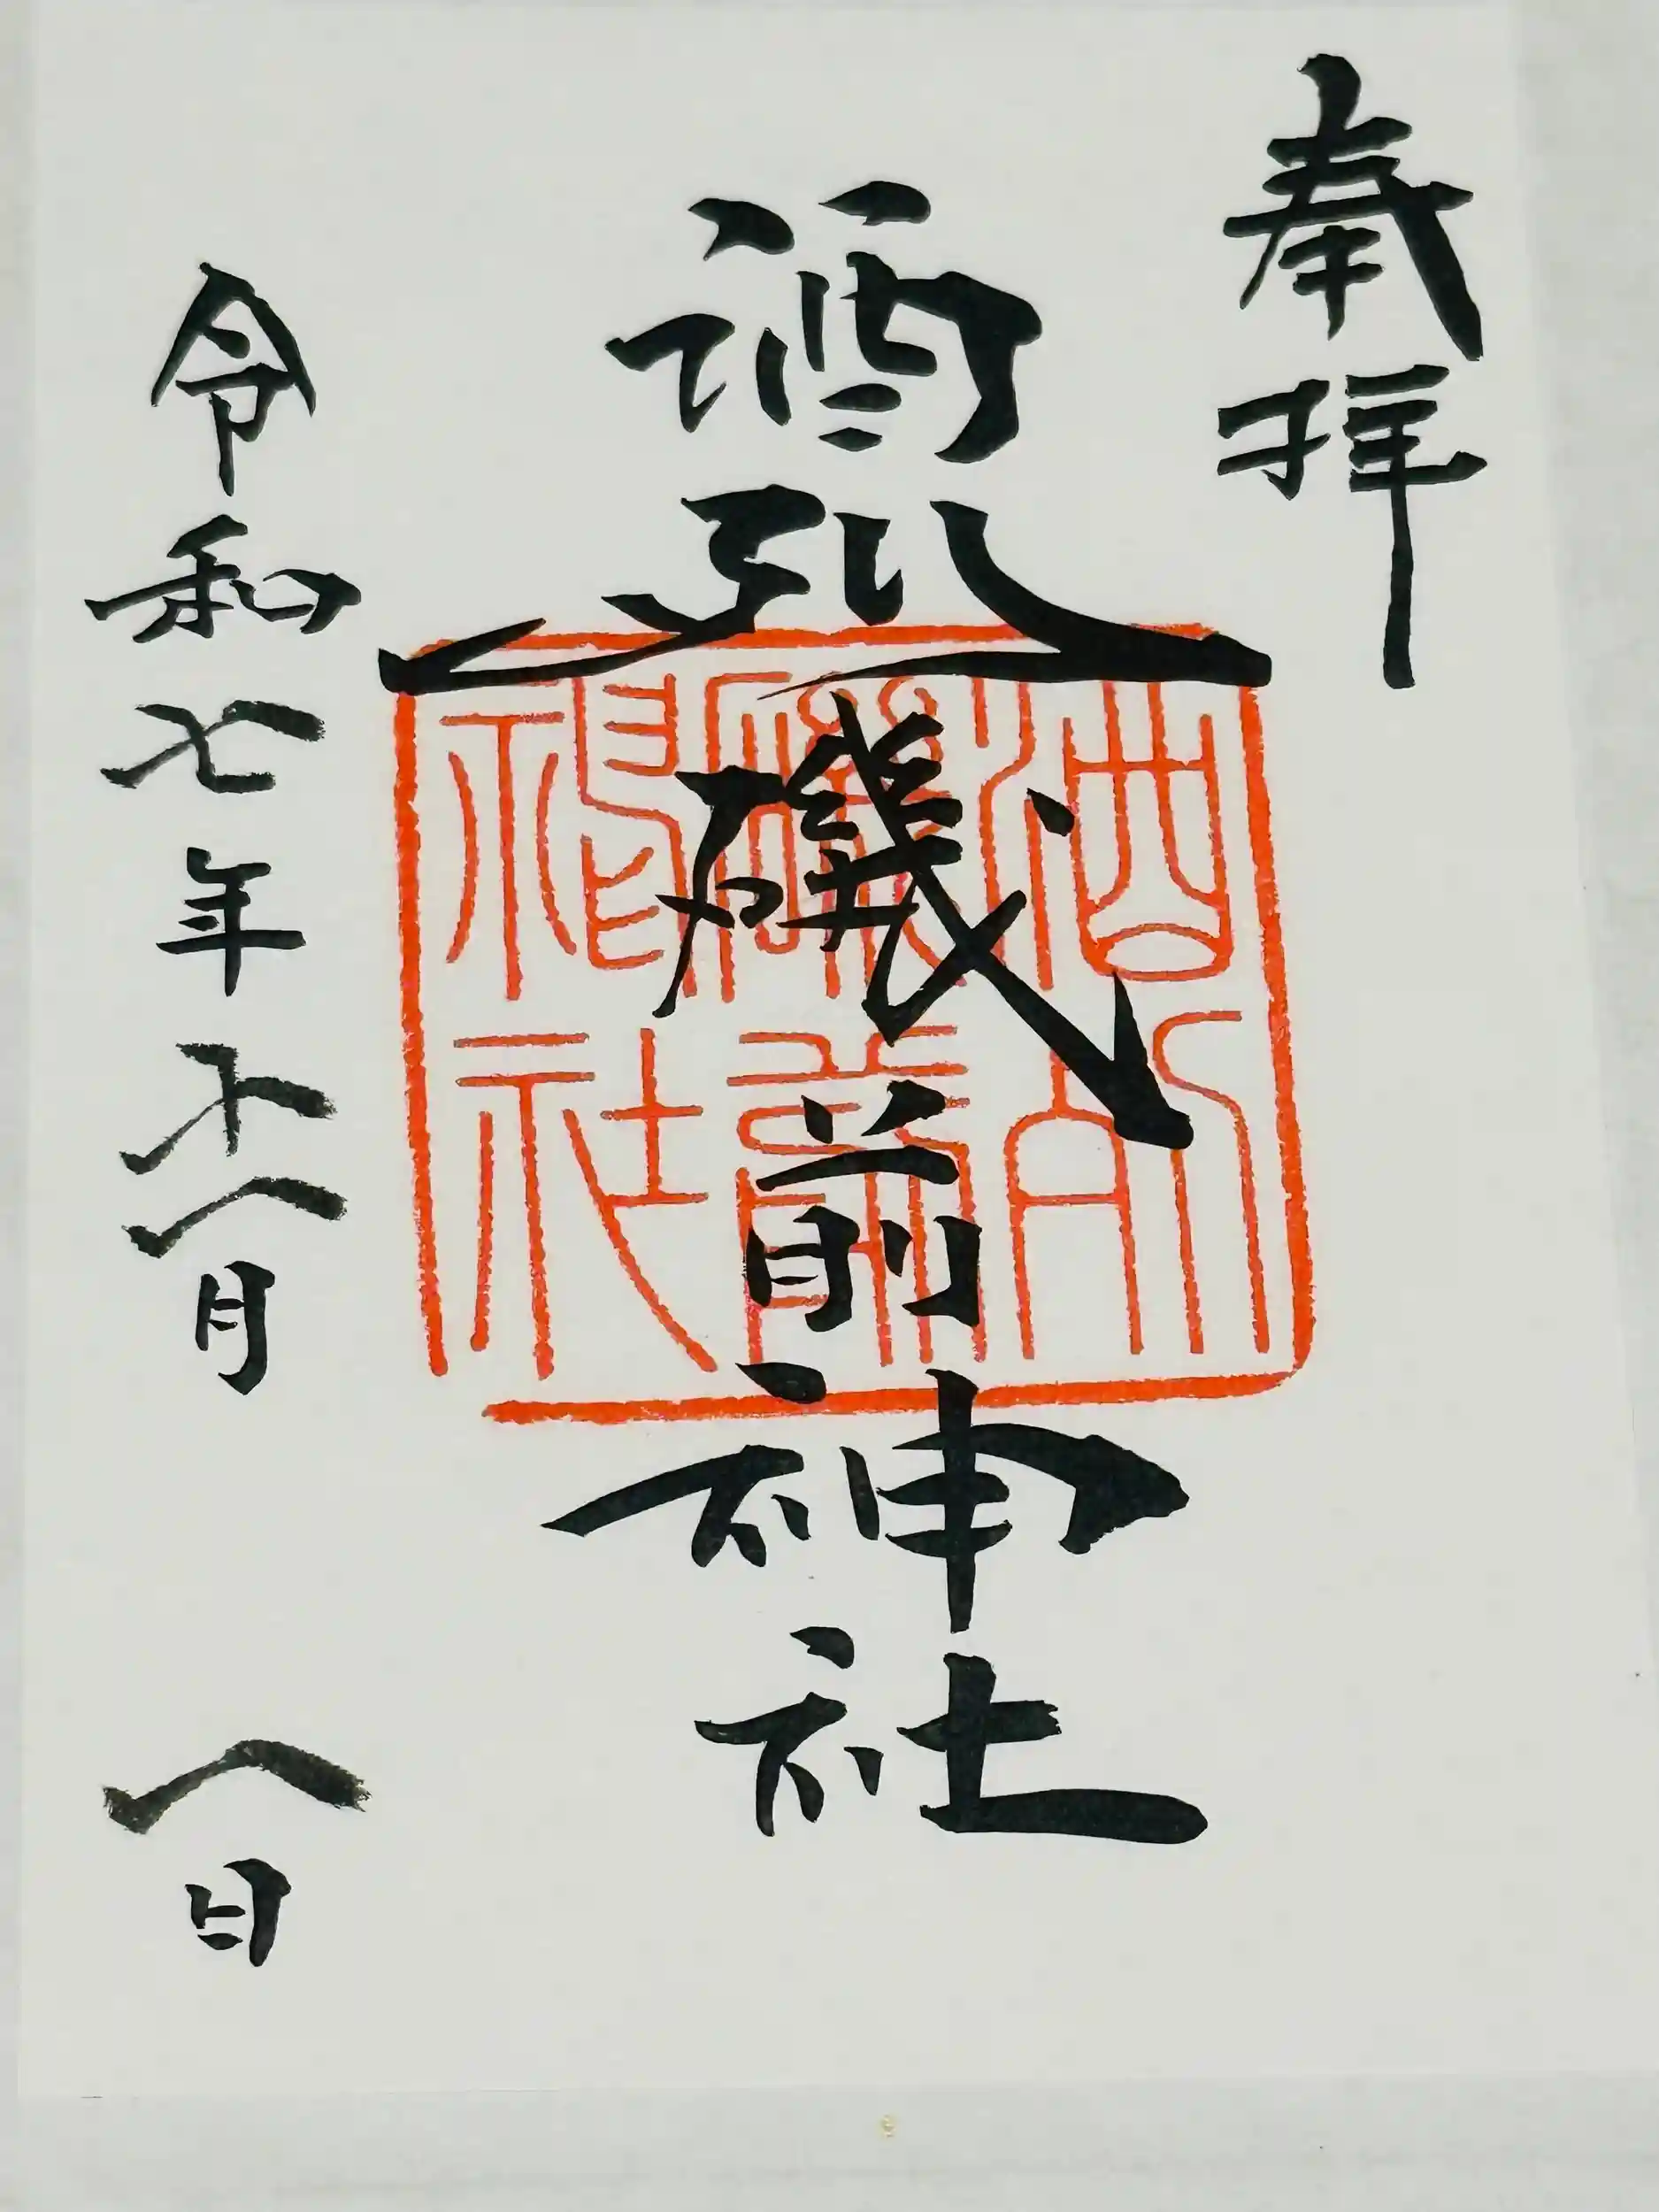 奉拝
酒列磯前神社
令和七年十一月 一日
酒列
磯前
神社